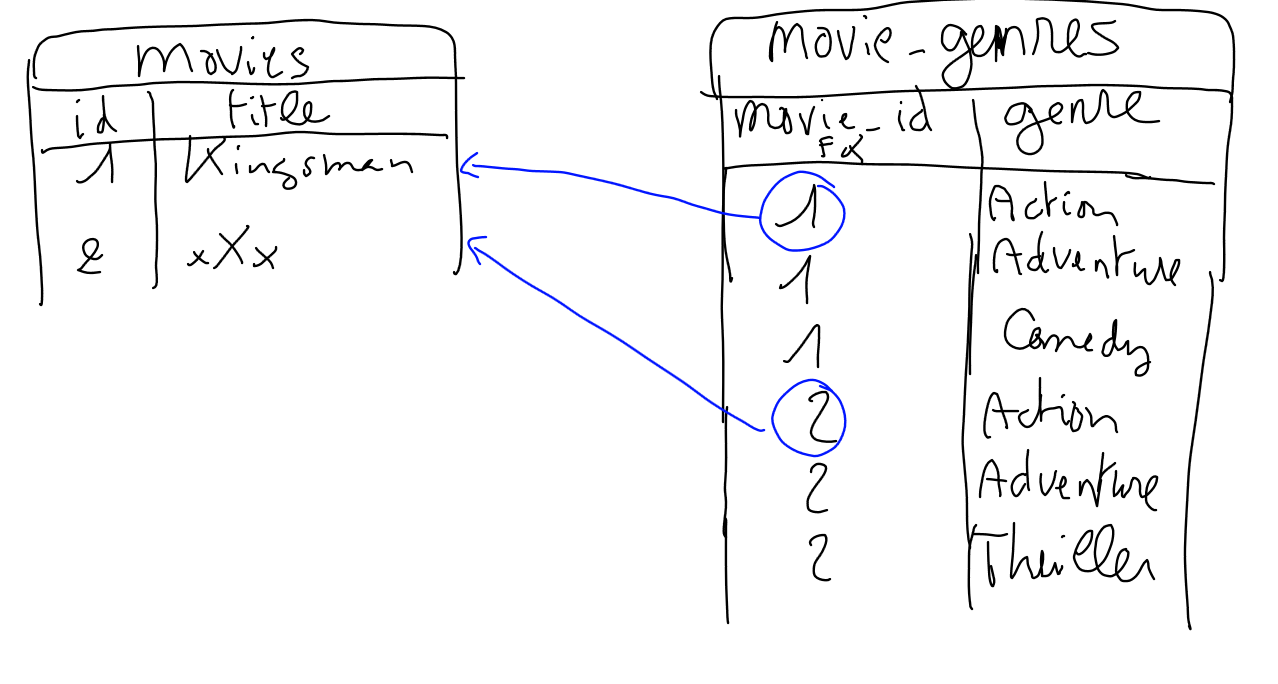 movies
id title
1 Kingsman
2 xXx
movie_genres
movie_id genre
FK
1 Action
1 Adventure
1 Comedy
2 Action
2 Adventure
2 Thriller